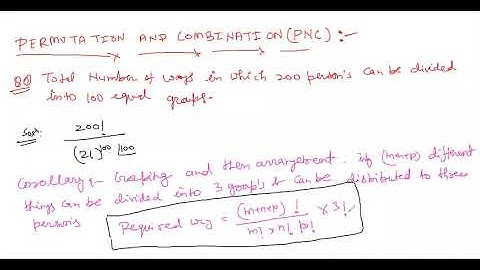 PERMUTATION AND COMBINATION (PNC) :-
Q① Total Number of ways in which 200 person's can be divided
into 100 equal groups.
Solⁿ: 200! / (2!)¹⁰⁰ ⌊100
Corollary:- Grouping and then arrangement. if (m+n+p) different
things can be divided into 3 group's & can be distributed to three
persons
Required way = (m+n+p)! / m! n! p! × 3!